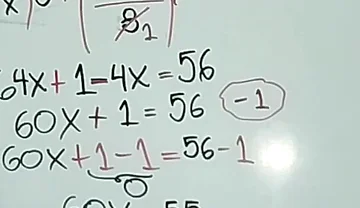 x
8 1
64x + 1 - 4x = 56
60x + 1 = 56 -1
60x + 1 - 1 = 56 - 1
0